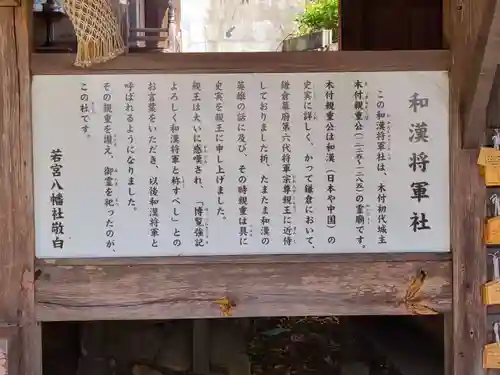 和漢将軍社
この和漢将軍社は、木付初代城主
木付親重公(一二二五~一二八五)の霊廟です。
木付親重公は和漢(日本や中国)の
史実に詳しく、かつて鎌倉において、
鎌倉幕府第六代将軍宗尊親王に近侍
しておりました折、たまたま和漢の
英雄の話に及び、その時親重は具に
史実を親王に申し上げました。
親王は大いに感嘆され、「博覧強記
よろしく和漢将軍と称すべし」との
お言葉をいただき、以後和漢将軍と
呼ばれるようになりました。
その親重を讃え、御霊を祀ったのが、
この社です。
若宮八幡社敬白